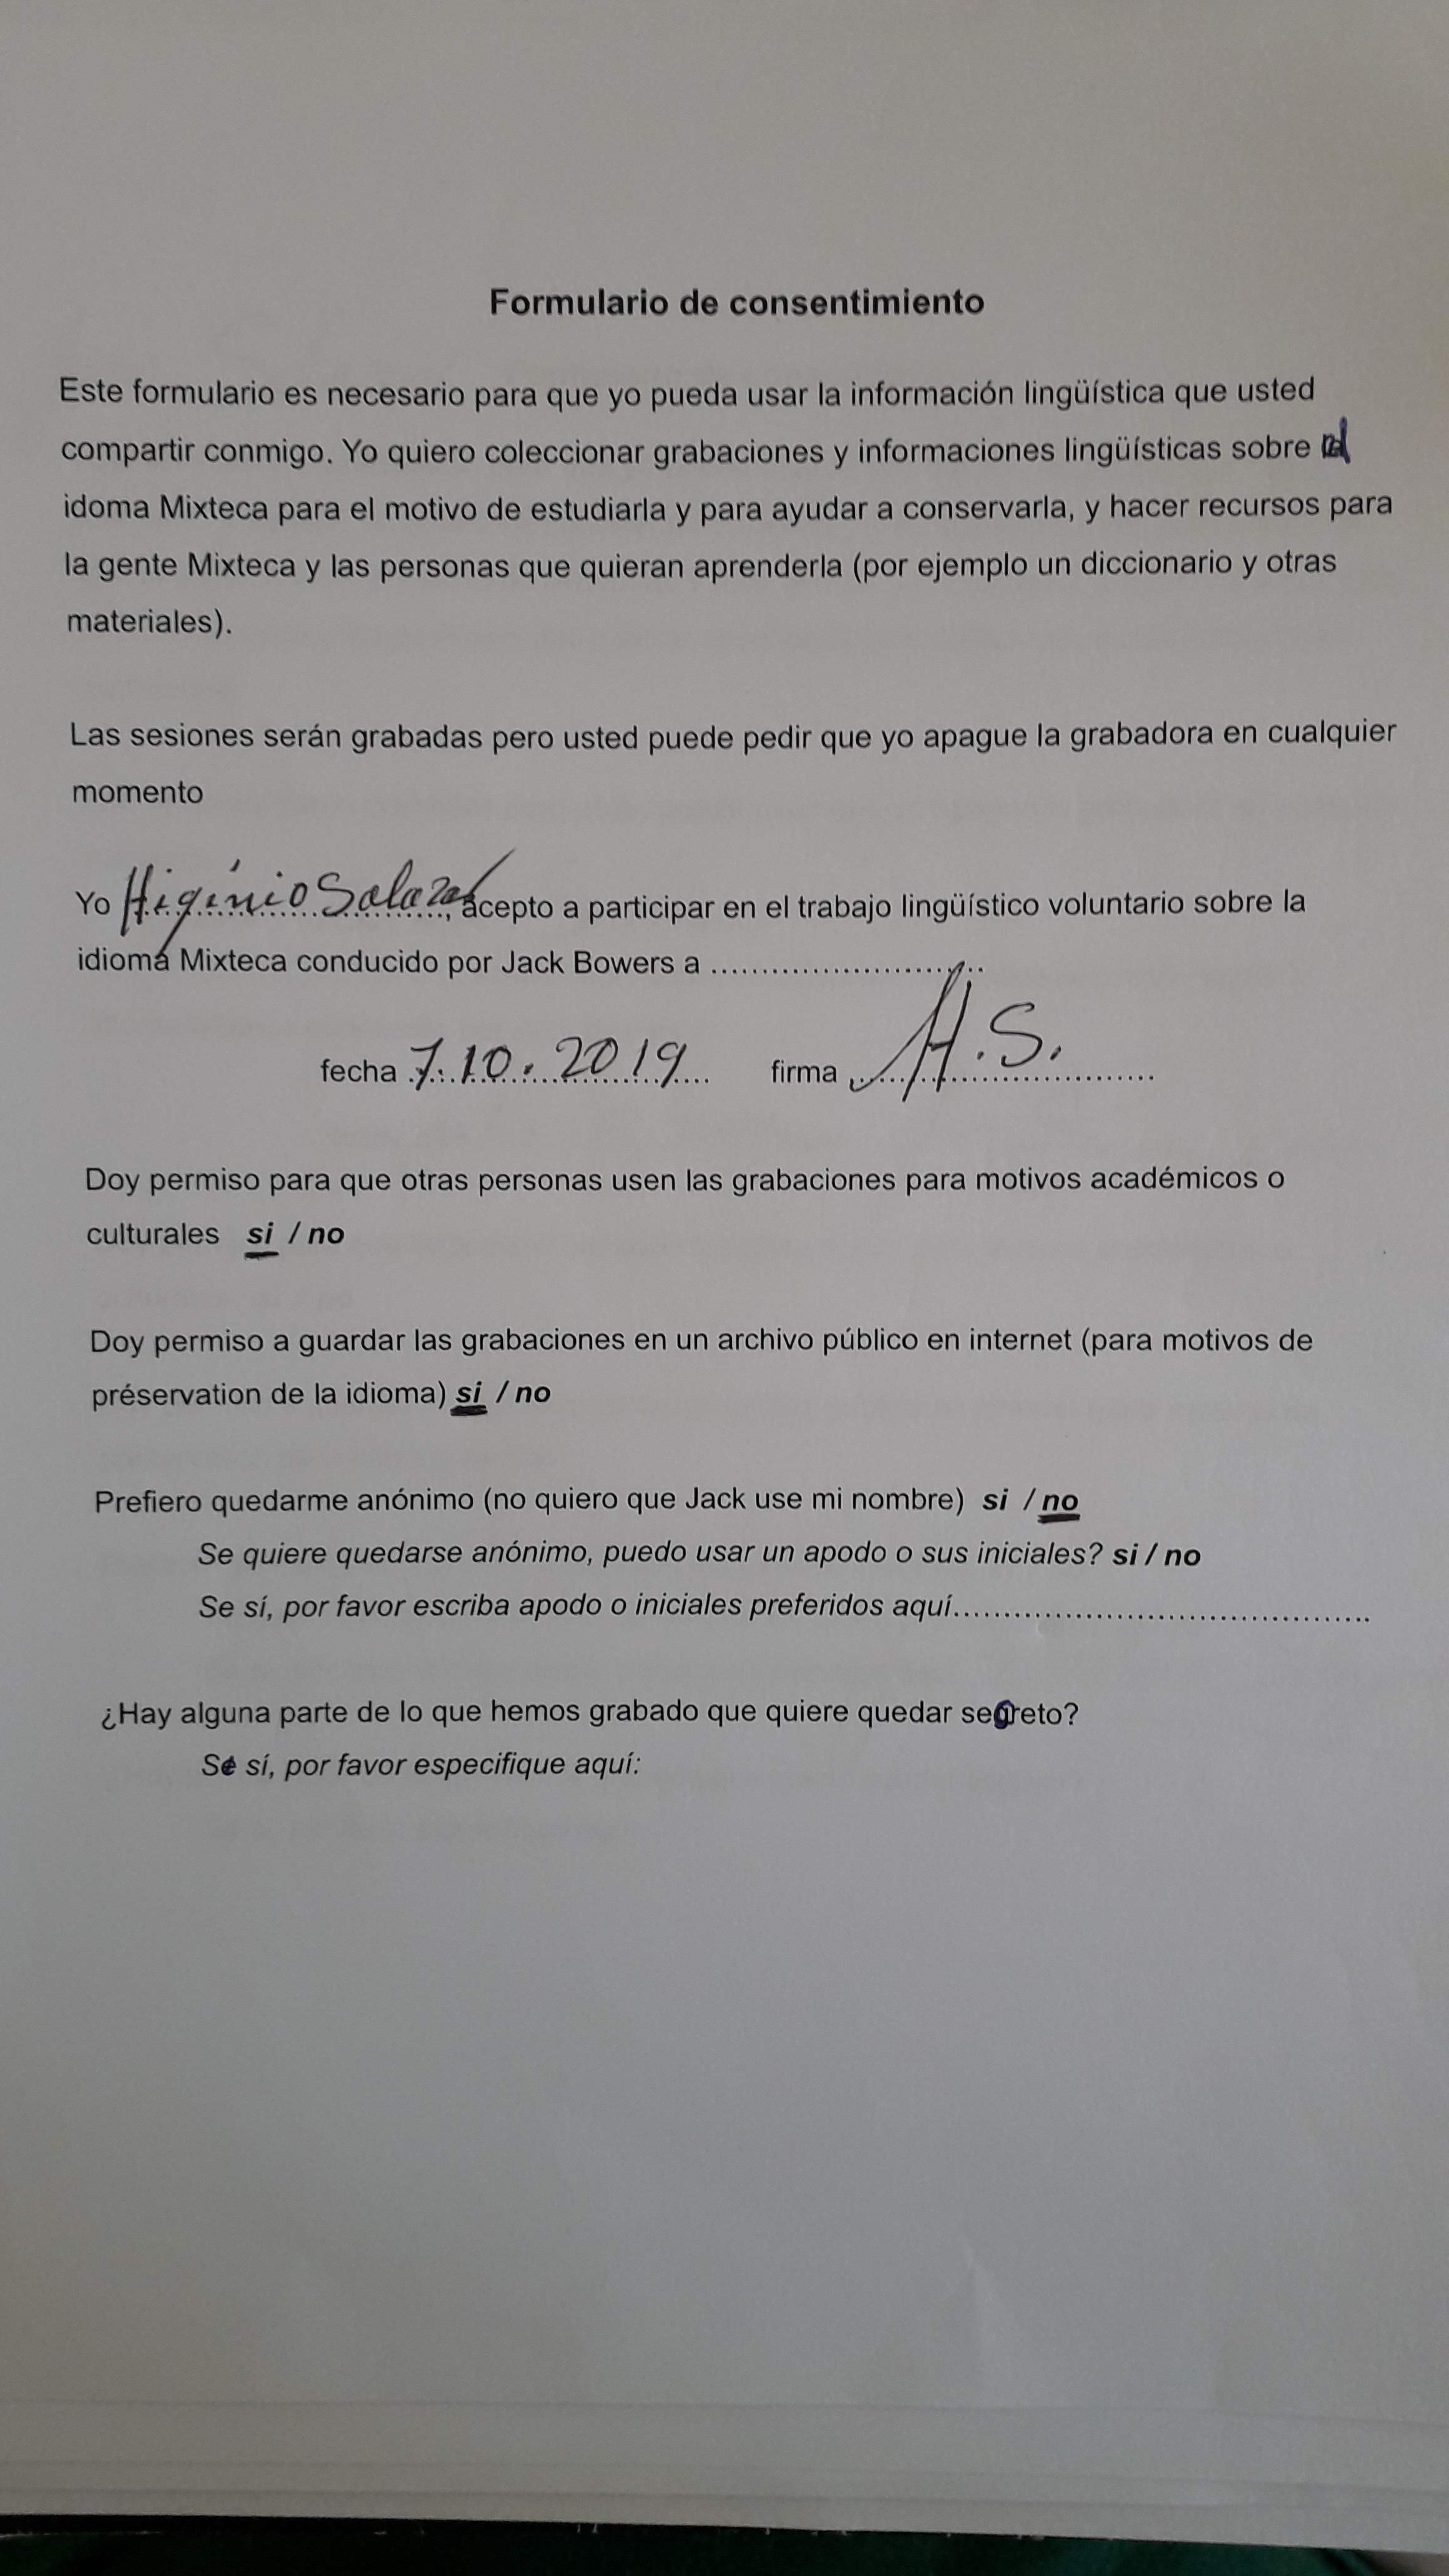 Formulario de consentimiento
Este formulario es necesario para que yo pueda usar la información lingüística que usted
compartir conmigo. Yo quiero coleccionar grabaciones y informaciones lingüísticas sobre el
idoma Mixteca para el motivo de estudiarla y para ayudar a conservarla, y hacer recursos para
la gente Mixteca y las personas que quieran aprenderla (por ejemplo un diccionario y otras
materiales).
Las sesiones serán grabadas pero usted puede pedir que yo apague la grabadora en cualquier
momento
Yo Higínio Salazar, acepto a participar en el trabajo lingüístico voluntario sobre la
idioma Mixteca conducido por Jack Bowers a ...........................
fecha 7.10.2019 firma H.S.
Doy permiso para que otras personas usen las grabaciones para motivos académicos o
culturales si / no
Doy permiso a guardar las grabaciones en un archivo público en internet (para motivos de
préservation de la idioma) si / no
Prefiero quedarme anónimo (no quiero que Jack use mi nombre) si / no
Se quiere quedarse anónimo, puedo usar un apodo o sus iniciales? si / no
Se sí, por favor escriba apodo o iniciales preferidos aquí..........................................
¿Hay alguna parte de lo que hemos grabado que quiere quedar secreto?
Si sí, por favor especifique aquí: